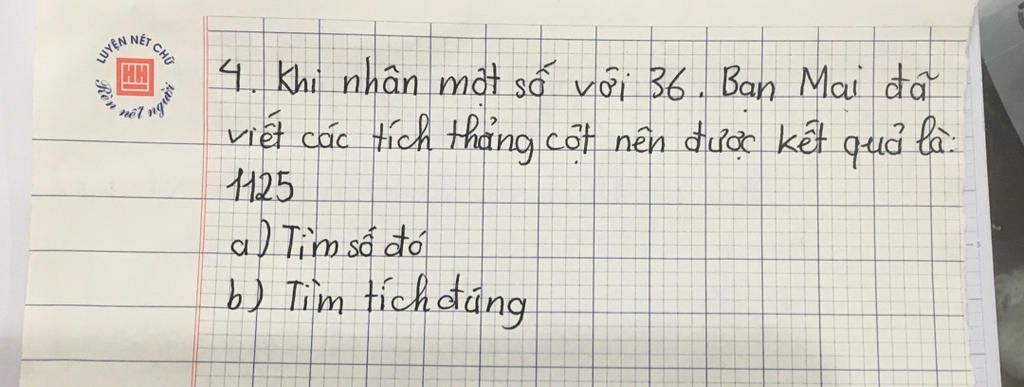 LUYỆN NÉT CHỮ
HH
Rèn nết người
4. Khi nhân một số với 36. Bạn Mai đã
viết các tích thẳng cột nên được kết quả là:
1125
a) Tìm số đó
b) Tìm tích đúng